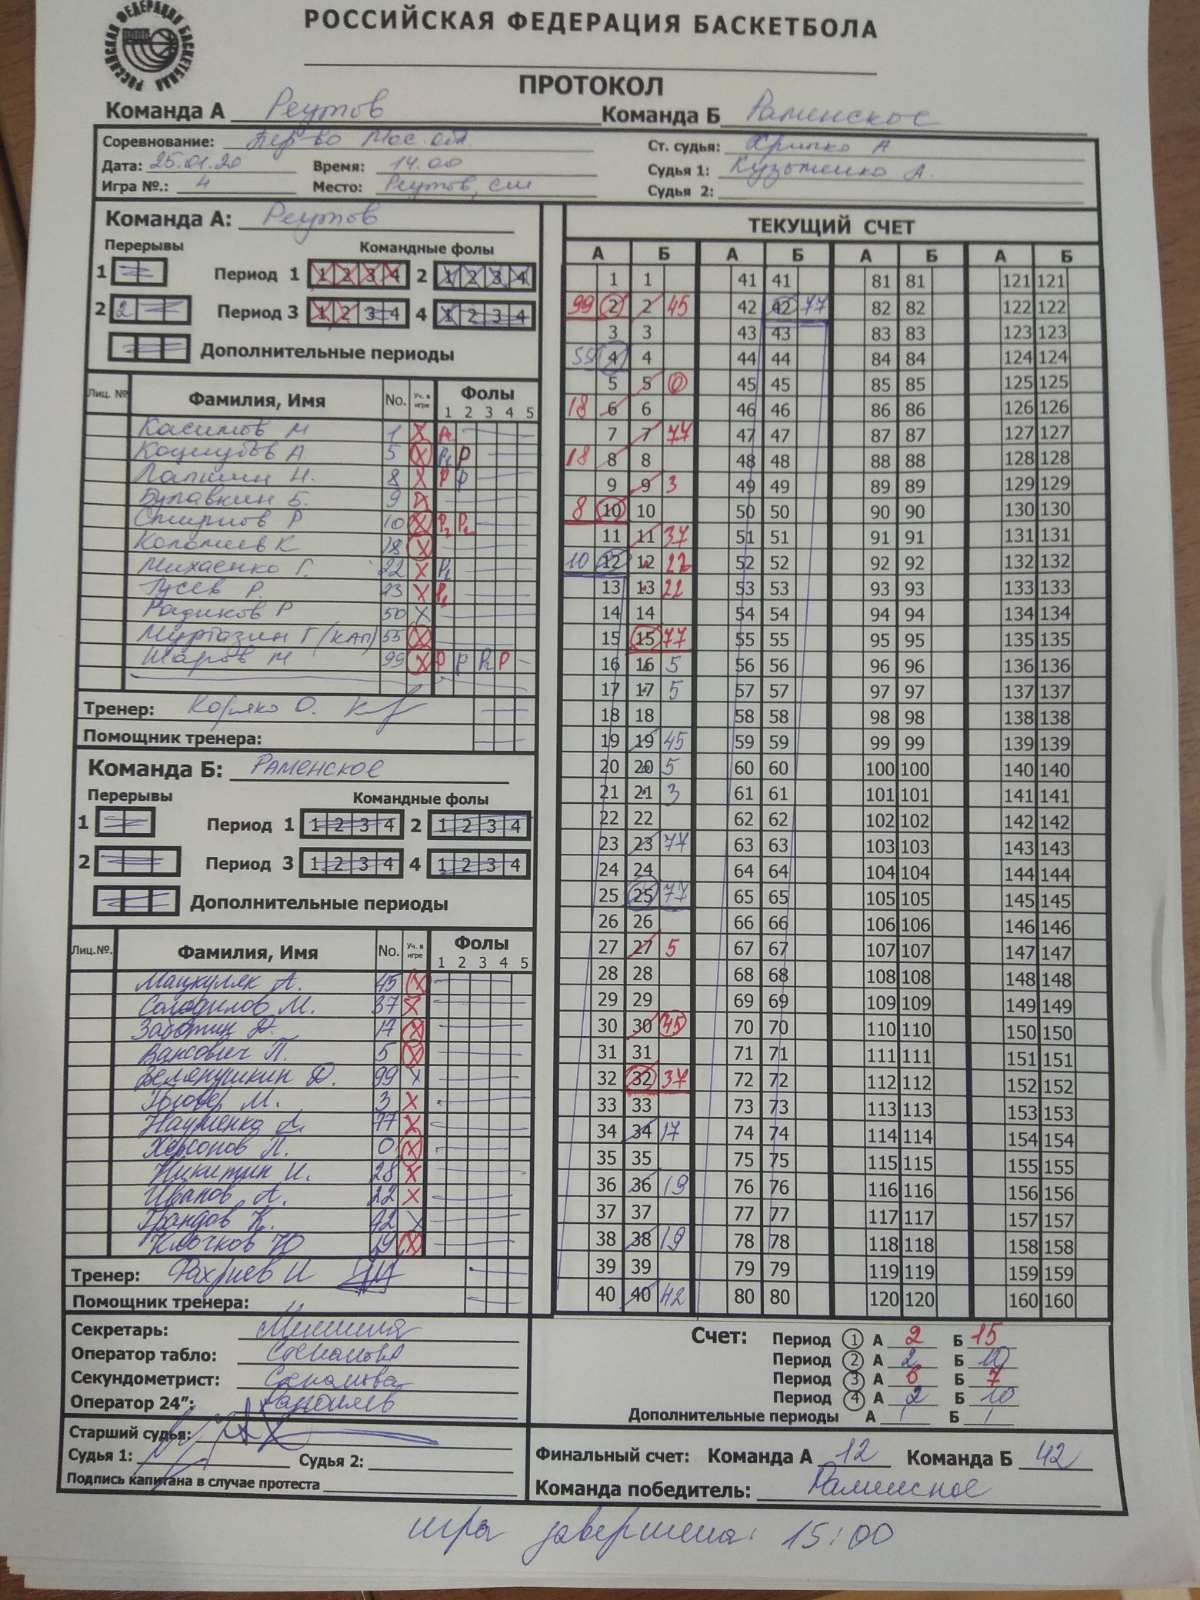 РОССИЙСКАЯ ФЕДЕРАЦИЯ БАСКЕТБОЛА
ПРОТОКОЛ
Команда А Реутов Команда Б Раменское
Соревнование: Пер-во Мос. обл. Ст. судья: Хрипко А
Дата: 25.01.20 Время: 14.00 Судья 1: Кузьменко А.
Игра №.: 4 Место: Реутов, сш Судья 2:
Команда А: Реутов
Перерывы Командные фолы
1 Период 1 1 2 3 4 2 1 2 3 4
2 2 Период 3 1 2 3 4 4 1 2 3 4
Дополнительные периоды
Лиц. № Фамилия, Имя No. Уч. в игре Фолы
1 2 3 4 5
Касимов М 1 X P
Кацюбов А. 5 X P₁ P
Лапшин Н. 8 X P P
Булавкин Б. 9 X
Смирнов Р 10 X P₂ P₂
Коломиев К 18 X
Михаенко Г. 22 X P₁
Гусев Р. 23 X P₂
Радиков Р 50 X
Муртазин Г (КАП) 55 X
Шаров М 99 X P P P₂ P
Тренер: Коряко О.
Помощник тренера:
Команда Б: Раменское
Перерывы Командные фолы
1 Период 1 1 2 3 4 2 1 2 3 4
2 Период 3 1 2 3 4 4 1 2 3 4
Дополнительные периоды
Лиц.№. Фамилия, Имя No. Уч. в игре Фолы
1 2 3 4 5
Мацкуляк А. 45 X
Солодилов М. 37 X
Заботин Д. 17 X
Вансович П. 5 X
Велепушкин Д. 99 X
М. 3 X
Науменко А. 77 X
Херсонов П. 0 X
Никитин И. 28 X
Иванов А. 22 X
Грандов К. 42 X
Клочков Ю 19 X
Тренер: Фахриев И
Помощник тренера:
Секретарь:
Оператор табло: Степанова
Секундометрист: Степанова
Оператор 24”:
Старший судья:
Судья 1: Судья 2:
Подпись капитана в случае протеста
ТЕКУЩИЙ СЧЕТ
А Б А Б А Б А Б
1 1 41 41 81 81 121 121
99 2 2 45 42 42 77 82 82 122 122
3 3 43 43 83 83 123 123
55 4 4 44 44 84 84 124 124
5 5 0 45 45 85 85 125 125
18 6 6 46 46 86 86 126 126
7 7 77 47 47 87 87 127 127
18 8 8 48 48 88 88 128 128
9 9 3 49 49 89 89 129 129
8 10 10 50 50 90 90 130 130
11 11 37 51 51 91 91 131 131
10 12 12 22 52 52 92 92 132 132
13 13 22 53 53 93 93 133 133
14 14 54 54 94 94 134 134
15 15 77 55 55 95 95 135 135
16 16 5 56 56 96 96 136 136
17 17 5 57 57 97 97 137 137
18 18 58 58 98 98 138 138
19 19 45 59 59 99 99 139 139
20 20 5 60 60 100 100 140 140
21 21 3 61 61 101 101 141 141
22 22 62 62 102 102 142 142
23 23 77 63 63 103 103 143 143
24 24 64 64 104 104 144 144
25 25 77 65 65 105 105 145 145
26 26 66 66 106 106 146 146
27 27 5 67 67 107 107 147 147
28 28 68 68 108 108 148 148
29 29 69 69 109 109 149 149
30 30 45 70 70 110 110 150 150
31 31 71 71 111 111 151 151
32 32 37 72 72 112 112 152 152
33 33 73 73 113 113 153 153
34 34 17 74 74 114 114 154 154
35 35 75 75 115 115 155 155
36 36 19 76 76 116 116 156 156
37 37 77 77 117 117 157 157
38 38 19 78 78 118 118 158 158
39 39 79 79 119 119 159 159
40 40 42 80 80 120 120 160 160
Счет: Период 1 А 2 Б 15
Период 2 А 2 Б 10
Период 3 А 6 Б 7
Период 4 А 2 Б 10
Дополнительные периоды А / Б /
Финальный счет: Команда А 12 Команда Б 42
Команда победитель: Раменское
игра завершена: 15:00